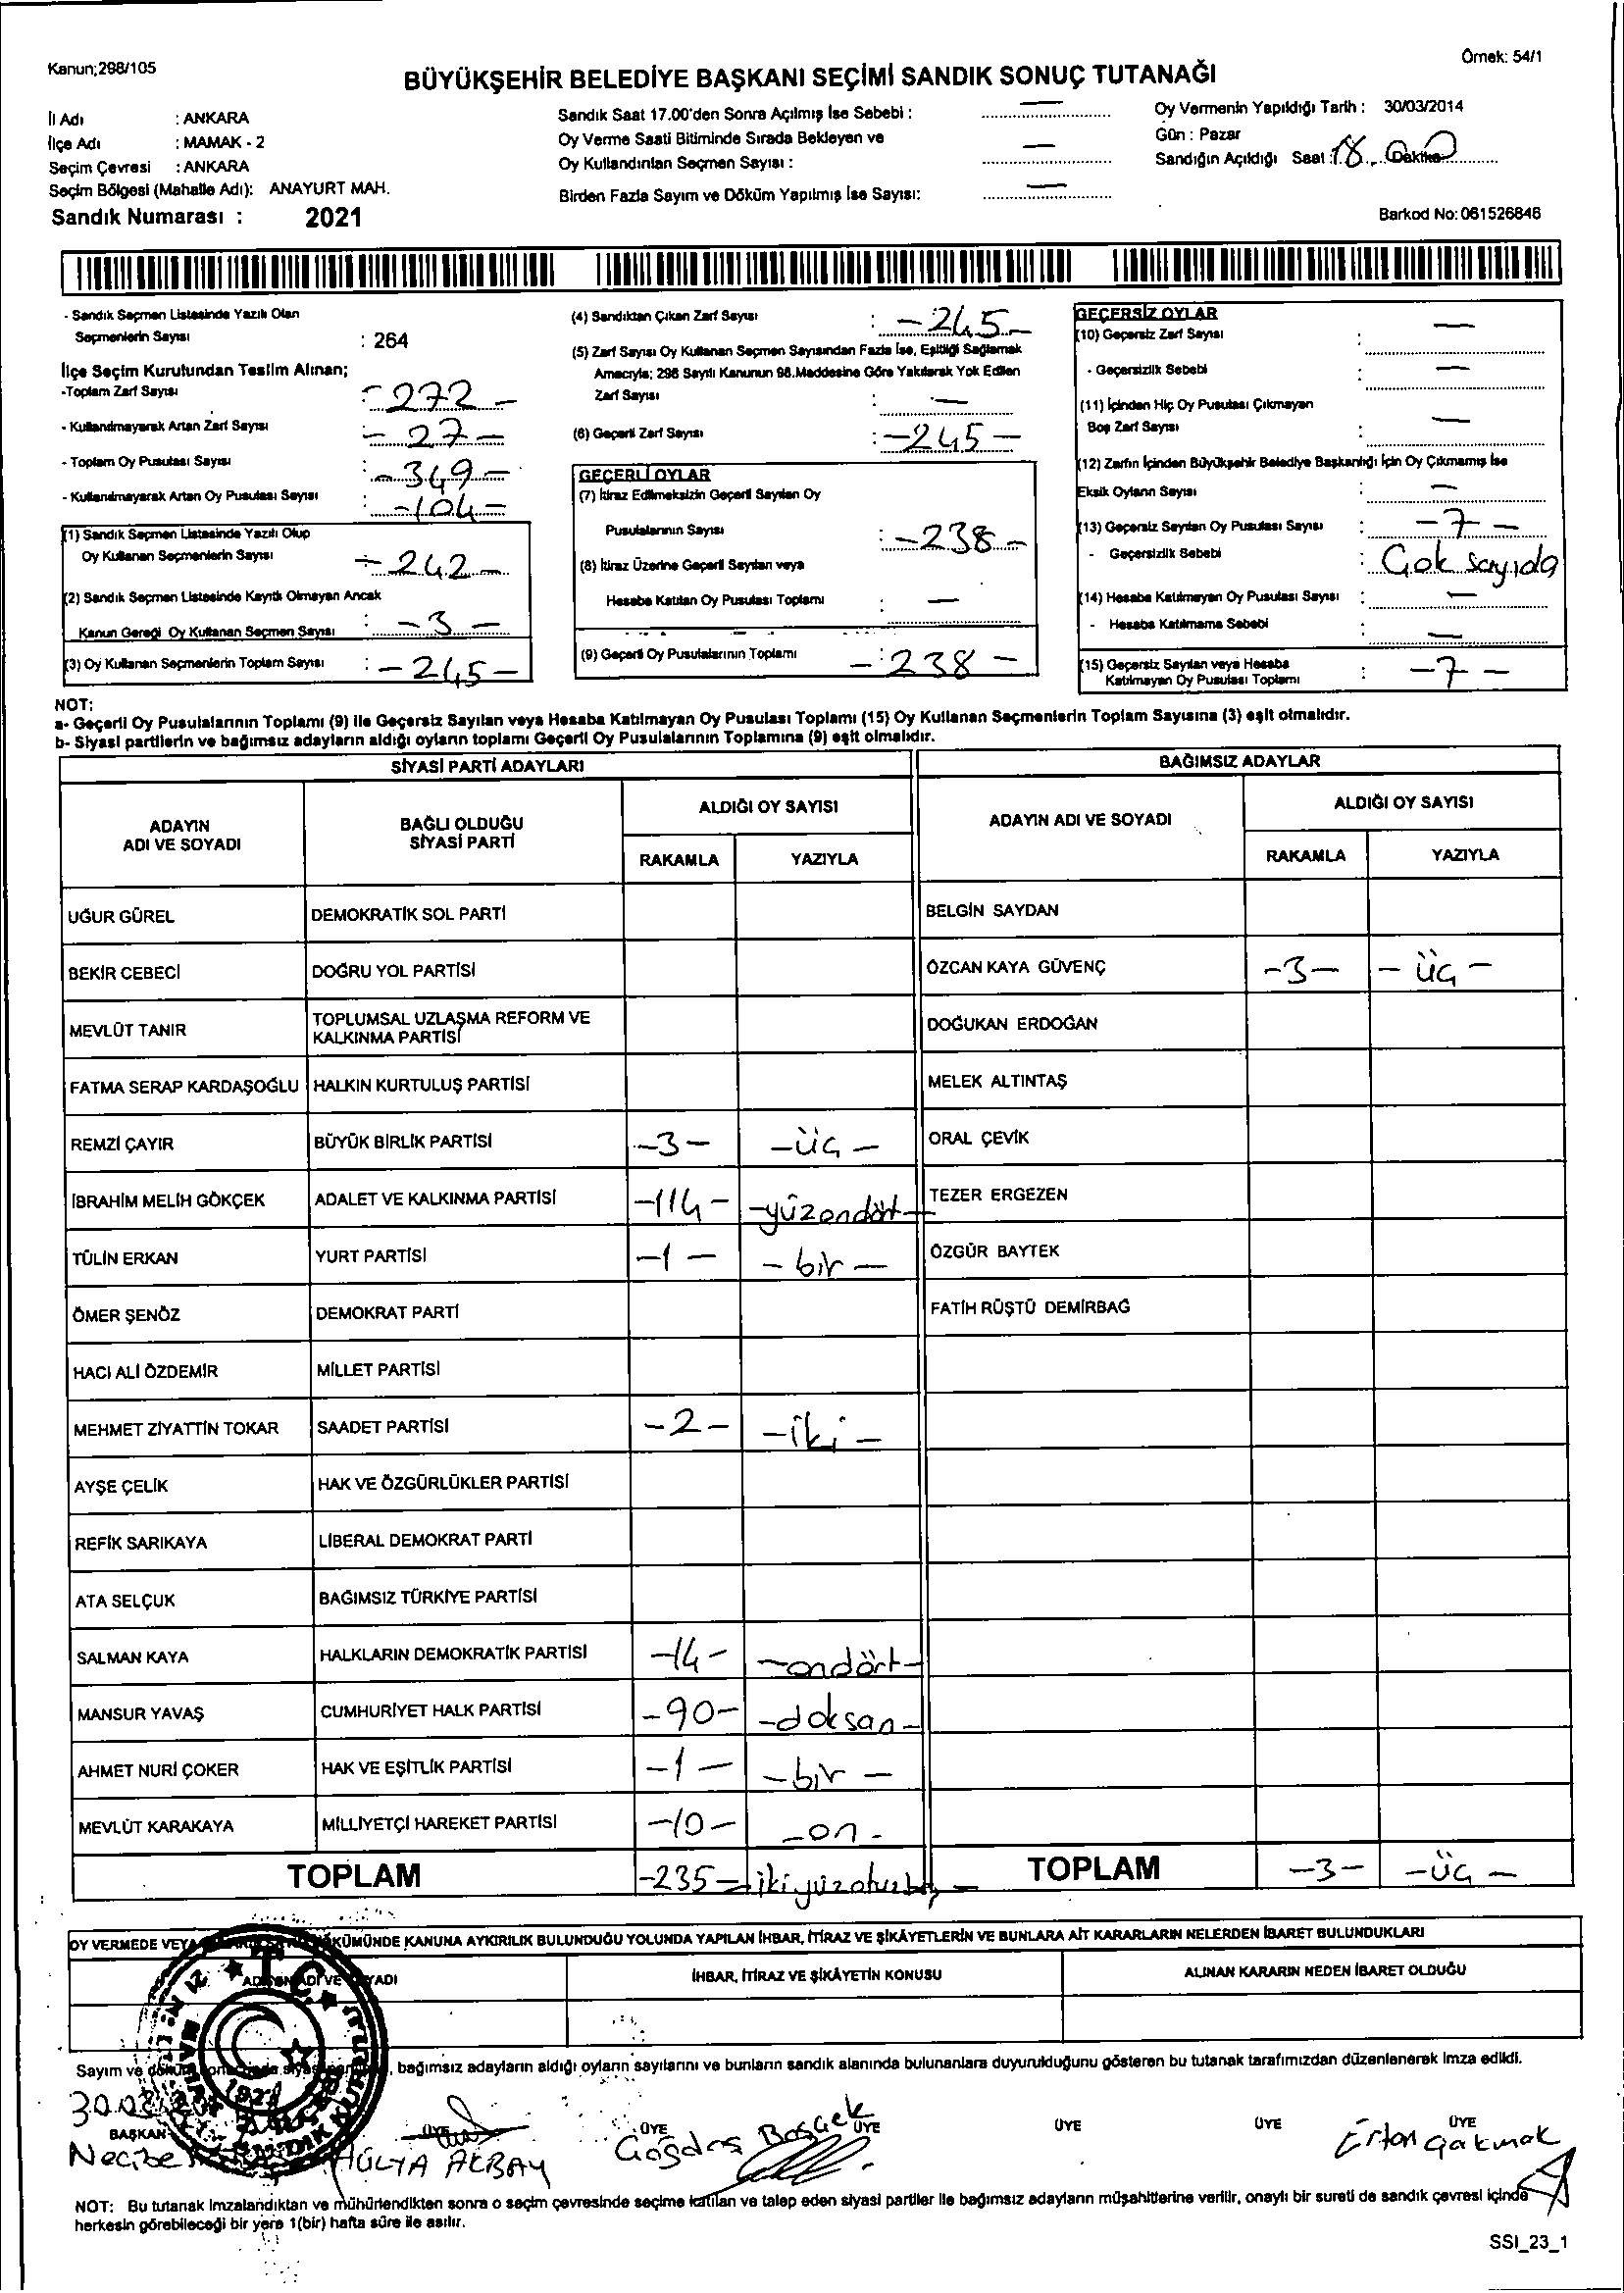 Kanun;298/105
Örnek: 54/1
BÜYÜKŞEHİR BELEDİYE BAŞKANI SEÇİMİ SANDIK SONUÇ TUTANAĞI
İl Adı : ANKARA
İlçe Adı : MAMAK - 2
Seçim Çevresi : ANKARA
Seçim Bölgesi (Mahalle Adı): ANAYURT MAH.
Sandık Numarası : 2021
Sandık Saat 17.00'den Sonra Açılmış İse Sebebi : —
Oy Verme Saati Bitiminde Sırada Bekleyen ve
Oy Kullandırılan Seçmen Sayısı : —
Birden Fazla Sayım ve Döküm Yapılmış İse Sayısı: —
Oy Vermenin Yapıldığı Tarih : 30/03/2014
Gün : Pazar
Sandığın Açıldığı Saat : 18 Dakika 00
Barkod No: 061526846
- Sandık Seçmen Listesinde Yazılı Olan
Seçmenlerin Sayısı : 264
İlçe Seçim Kurulundan Teslim Alınan;
-Toplam Zarf Sayısı : -272-
- Kullanılmayarak Artan Zarf Sayısı : -27-
- Toplam Oy Pusulası Sayısı : -349-
- Kullanılmayarak Artan Oy Pusulası Sayısı : -104-
(1) Sandık Seçmen Listesinde Yazılı Olup
Oy Kullanan Seçmenlerin Sayısı : -242-
(2) Sandık Seçmen Listesinde Kayıtlı Olmayan Ancak
Kanun Gereği Oy Kullanan Seçmen Sayısı : -3-
(3) Oy Kullanan Seçmenlerin Toplam Sayısı : -245-
(4) Sandıktan Çıkan Zarf Sayısı : -245-
(5) Zarf Sayısı Oy Kullanan Seçmen Sayısından Fazla İse, Eşitliği Sağlamak
Amacıyla; 298 Sayılı Kanunun 98.Maddesine Göre Yakılarak Yok Edilen
Zarf Sayısı : —
(6) Geçerli Zarf Sayısı : -245-
GEÇERLİ OYLAR
(7) İtiraz Edilmeksizin Geçerli Sayılan Oy
Pusulalarının Sayısı : -238-
(8) İtiraz Üzerine Geçerli Sayılan veya
Hesaba Katılan Oy Pusulası Toplamı : —
(9) Geçerli Oy Pusulalarının Toplamı : -238-
GEÇERSİZ OYLAR
(10) Geçersiz Zarf Sayısı : —
- Geçersizlik Sebebi : —
(11) İçinden Hiç Oy Pusulası Çıkmayan
Boş Zarf Sayısı : —
(12) Zarfın İçinden Büyükşehir Belediye Başkanlığı İçin Oy Çıkmamış İse
Eksik Oyların Sayısı : —
(13) Geçersiz Sayılan Oy Pusulası Sayısı : -7-
- Geçersizlik Sebebi : Çok sayıda
(14) Hesaba Katılmayan Oy Pusulası Sayısı : —
- Hesaba Katılmama Sebebi : —
(15) Geçersiz Sayılan veya Hesaba
Katılmayan Oy Pusulası Toplamı : -7-
NOT:
a- Geçerli Oy Pusulalarının Toplamı (9) ile Geçersiz Sayılan veya Hesaba Katılmayan Oy Pusulası Toplamı (15) Oy Kullanan Seçmenlerin Toplam Sayısına (3) eşit olmalıdır.
b- Siyasi partilerin ve bağımsız adayların aldığı oyların toplamı Geçerli Oy Pusulalarının Toplamına (9) eşit olmalıdır.
SİYASİ PARTİ ADAYLARI
ADAYIN
ADI VE SOYADI
BAĞLI OLDUĞU
SİYASİ PARTİ
ALDIĞI OY SAYISI
RAKAMLA YAZIYLA
UĞUR GÜREL DEMOKRATİK SOL PARTİ
BEKİR CEBECİ DOĞRU YOL PARTİSİ
MEVLÜT TANIR TOPLUMSAL UZLAŞMA REFORM VE
KALKINMA PARTİSİ
FATMA SERAP KARDAŞOĞLU HALKIN KURTULUŞ PARTİSİ
REMZİ ÇAYIR BÜYÜK BİRLİK PARTİSİ -3- -üç-
İBRAHİM MELİH GÖKÇEK ADALET VE KALKINMA PARTİSİ -114- -yüzondört-
TÜLİN ERKAN YURT PARTİSİ -1- -bir-
ÖMER ŞENÖZ DEMOKRAT PARTİ
HACI ALİ ÖZDEMİR MİLLET PARTİSİ
MEHMET ZİYATTİN TOKAR SAADET PARTİSİ -2- -iki-
AYŞE ÇELİK HAK VE ÖZGÜRLÜKLER PARTİSİ
REFİK SARIKAYA LİBERAL DEMOKRAT PARTİ
ATA SELÇUK BAĞIMSIZ TÜRKİYE PARTİSİ
SALMAN KAYA HALKLARIN DEMOKRATİK PARTİSİ -14- -ondört-
MANSUR YAVAŞ CUMHURİYET HALK PARTİSİ -90- -doksan-
AHMET NURİ ÇOKER HAK VE EŞİTLİK PARTİSİ -1- -bir-
MEVLÜT KARAKAYA MİLLİYETÇİ HAREKET PARTİSİ -10- -on-
TOPLAM -235- ikiyüzotuzbeş-
BAĞIMSIZ ADAYLAR
ADAYIN ADI VE SOYADI
ALDIĞI OY SAYISI
RAKAMLA YAZIYLA
BELGİN SAYDAN
ÖZCAN KAYA GÜVENÇ -3- -üç-
DOĞUKAN ERDOĞAN
MELEK ALTINTAŞ
ORAL ÇEVİK
TEZER ERGEZEN
ÖZGÜR BAYTEK
FATİH RÜŞTÜ DEMİRBAĞ
TOPLAM -3- -üç-
OY VERMEDE VEYA KÜMÜNDE KANUNA AYKIRILIK BULUNDUĞU YOLUNDA YAPILAN İHBAR, İTİRAZ VE ŞİKÂYETLERİN VE BUNLARA AİT KARARLARIN NELERDEN İBARET BULUNDUKLARI
ADI VE SOYADI
İHBAR, İTİRAZ VE ŞİKÂYETİN KONUSU
ALINAN KARARIN NEDEN İBARET OLDUĞU
T.C.
Sayım ve döküm , bağımsız adayların aldığı oyların sayılarını ve bunların sandık alanında bulunanlara duyurulduğunu gösteren bu tutanak tarafımızdan düzenlenerek imza edildi.
30.03.
BAŞKAN ÜYE ÜYE ÜYE ÜYE ÜYE ÜYE
Necibe HÜLYA AKBAY Ertan Çakmak
NOT: Bu tutanak imzalandıktan ve mühürlendikten sonra o seçim çevresinde seçime katılan ve talep eden siyasi partiler ile bağımsız adayların müşahitlerine verilir, onaylı bir sureti de sandık çevresi içinde
herkesin görebileceği bir yere 1(bir) hafta süre ile asılır.
SSI_23_1